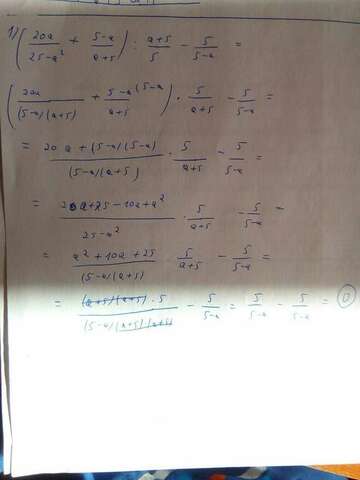 1) (20a/(25-a²) + (5-a)/(a+5)) : (a+5)/5 - 5/(5-a) =
(20a/((5-a)(a+5)) + (5-a (5-a))/(a+5)) · 5/(a+5) - 5/(5-a) =
= (20a + (5-a)(5-a))/((5-a)(a+5)) · 5/(a+5) - 5/(5-a) =
= (20a+25-10a+a²)/(25-a²) · 5/(a+5) - 5/(5-a) =
= (a²+10a+25)/((5-a)(a+5)) · 5/(a+5) - 5/(5-a) =
= ((a+5)(a+5)·5)/((5-a)(a+5)(a+5)) - 5/(5-a) = 5/(5-a) - 5/(5-a) = 0